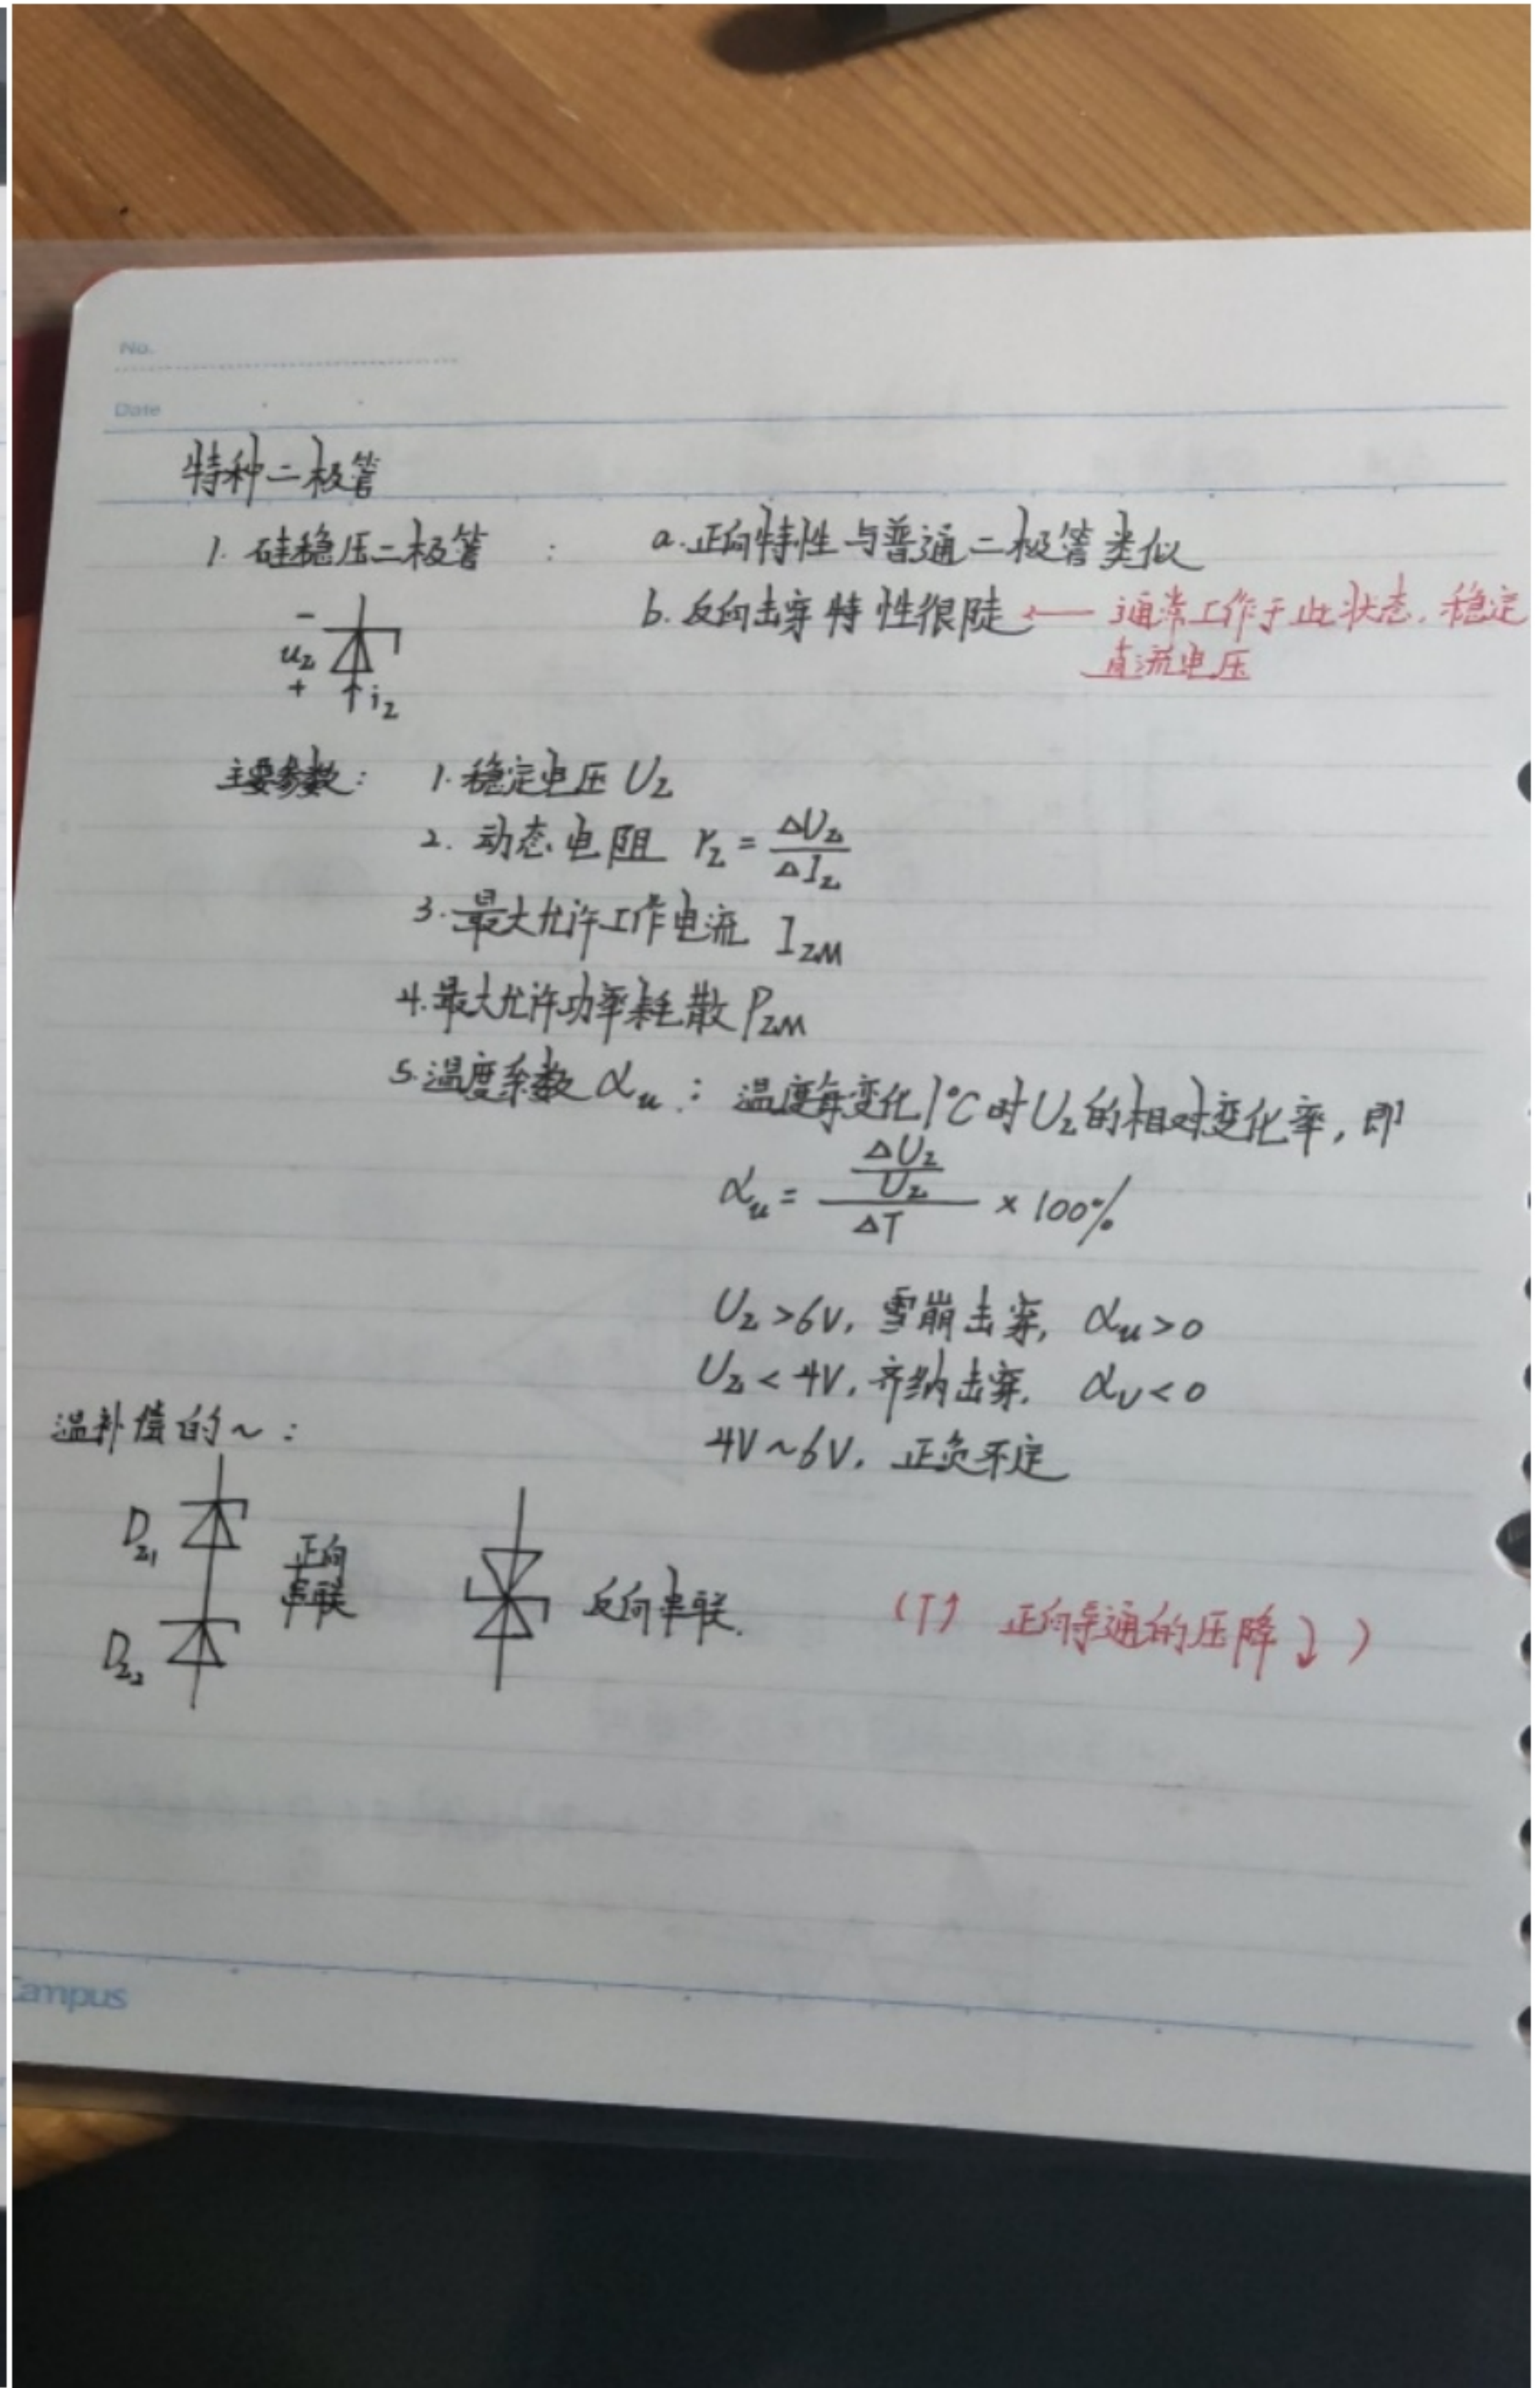 No.
Date
特种二极管
1. 硅稳压二极管 : a.正向特性与普通二极管类似
b.反向击穿特性很陡 ← 通常工作于此状态,稳定
直流电压
-
u_z
+ ↑i_z
主要参数: 1.稳定电压 U_z
2. 动态电阻 r_z = ΔU_z/ΔI_z
3.最大允许工作电流 I_ZM
4.最大允许功率耗散 P_ZM
5.温度系数 α_u : 温度每变化1°C时U_z的相对变化率,即
α_u = (ΔU_z/U_z)/ΔT × 100%
U_z>6V, 雪崩击穿, α_u>0
U_z<4V, 齐纳击穿, α_U<0
4V~6V, 正负不定
温补偿的~:
D_z1 正向
串联
D_z2
反向串联. (T↑ 正向导通的压降↓)
Campus